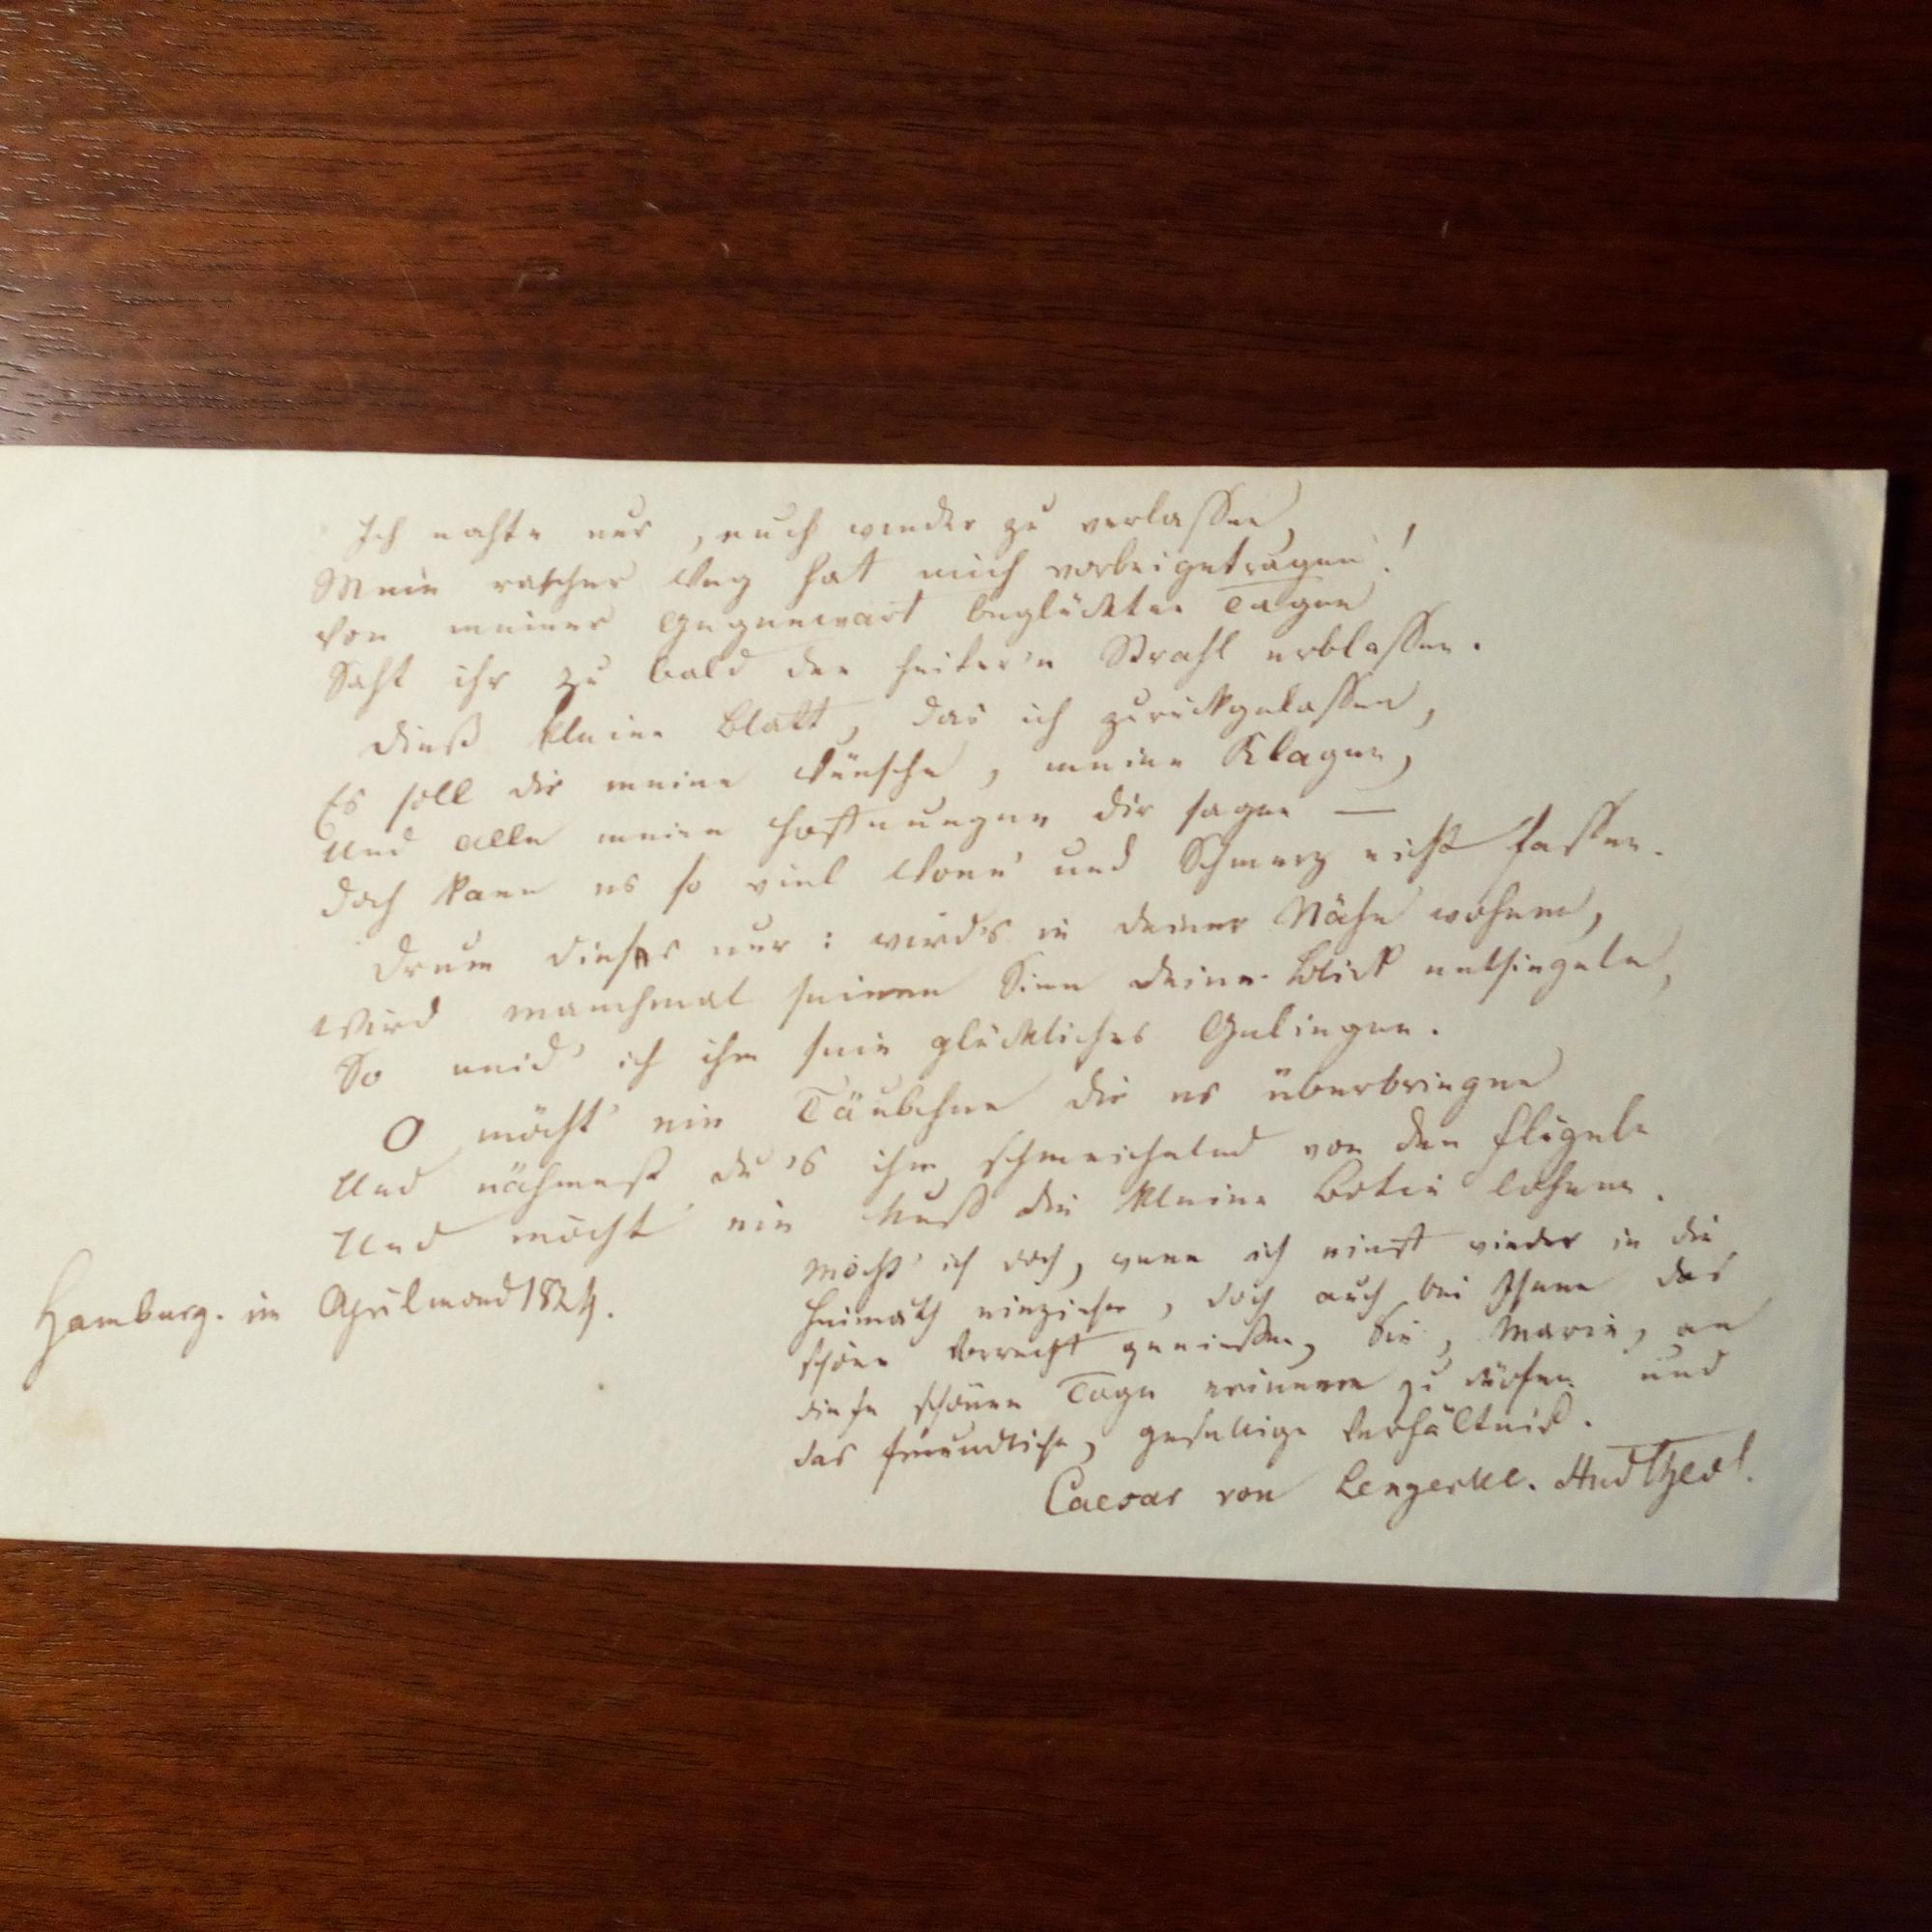 Ich nahte nur, euch wieder zu verlassen,
Mein rascher Weg hat mich vorbeigetragen!
Von meiner Gegenwart beglückten Tagen
Saht ihr zu bald den heiter'n Strahl erblassen.
Dieß kleine Blatt, das ich zurückgelassen,
Es soll die meine Wünsche, meine Klagen,
Und alle meine Hoffnungen dir sagen —
Doch kann es so viel Wonn' und Schmerz nicht fassen.
Drum dieses nur: wird's in deiner Nähe wohnen,
Wird manchmal seinen Sinn dein Blick entsiegeln,
So neid' ich ihm sein glückliches Gelingen.
O möcht' ein Täubchen dir es überbringen
Und nähmest du's ihm schmeichelnd von den Flügeln
Und möcht' ein Kuß die kleine Botin lohnen.
Möcht' ich doch, wenn ich einst wieder in die
Heimath einziehe, doch auch bei Ihnen das
schöne Vorrecht genießen, Sie, Marie, an
diese schönen Tage erinnern zu dürfen und
das freundliche, gesellige Verhältniß.
Hamburg. im Aprilmond 1824.
Caesar von Lengerke. Stud Theol.